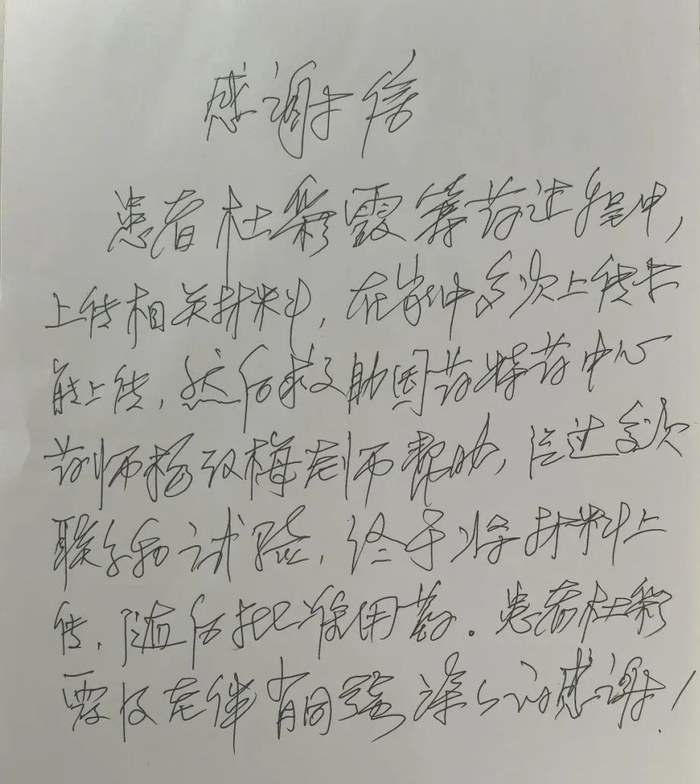 感谢信
患者杜彩霞筹药过程中,
上传相关材料,在家中多次上传未
能上传,然后求助国药特药中心
药师杨改梅老师帮助,经过多次
联系和试验,终于将材料上
传,随后批准用药。患者杜彩
霞及老伴 深深的感谢!